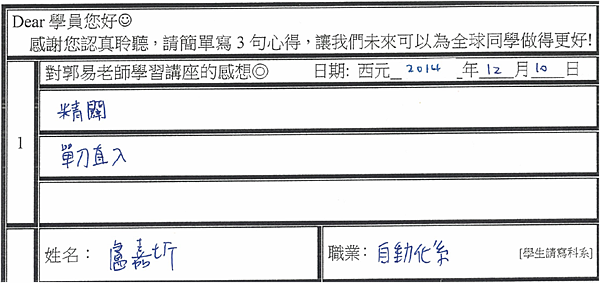 Dear 學員您好☺
感謝您認真聆聽，請簡單寫 3 句心得，讓我們未來可以為全球同學做得更好!
對郭易老師學習講座的感想◎ 日期: 西元 2014 年 12 月 10 日
1
精闢
單刀直入
姓名： 盧嘉圻 職業: 自動化系 [學生請寫科系]